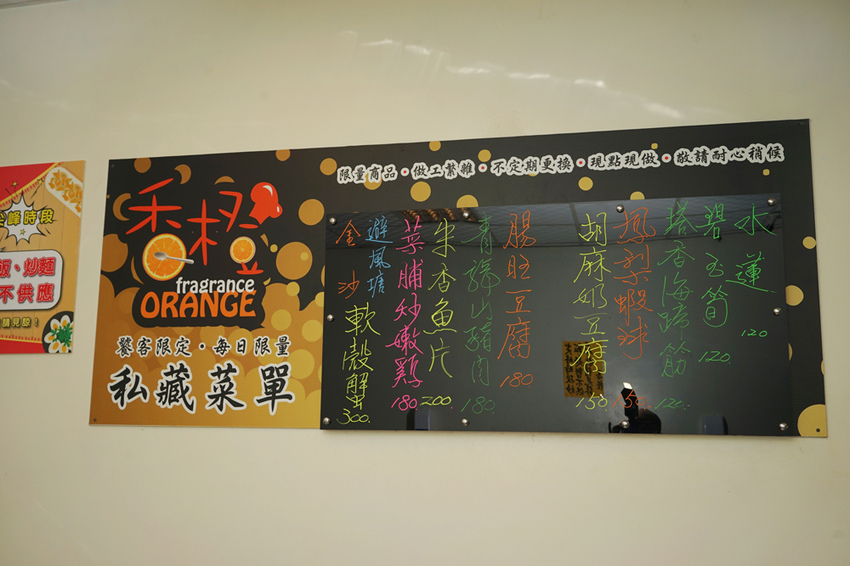 尖峰時段
飯、炒麵
不供應
請見諒！
香橙
fragrance
ORANGE
饕客限定・每日限量
私藏菜單
限量商品・做工繁雜・不定期更換・現點現做・敬請耐心稍候
水蓮 120
碧玉筍 120
塔香海蹄筋 120
鳳梨蝦球 150
胡麻奶豆腐 150
腸旺豆腐 180
青蒜山豬肉 180
朱杏魚片 200.
菜脯炒嫩雞 180
避風塘
金沙 軟殼蟹 300.